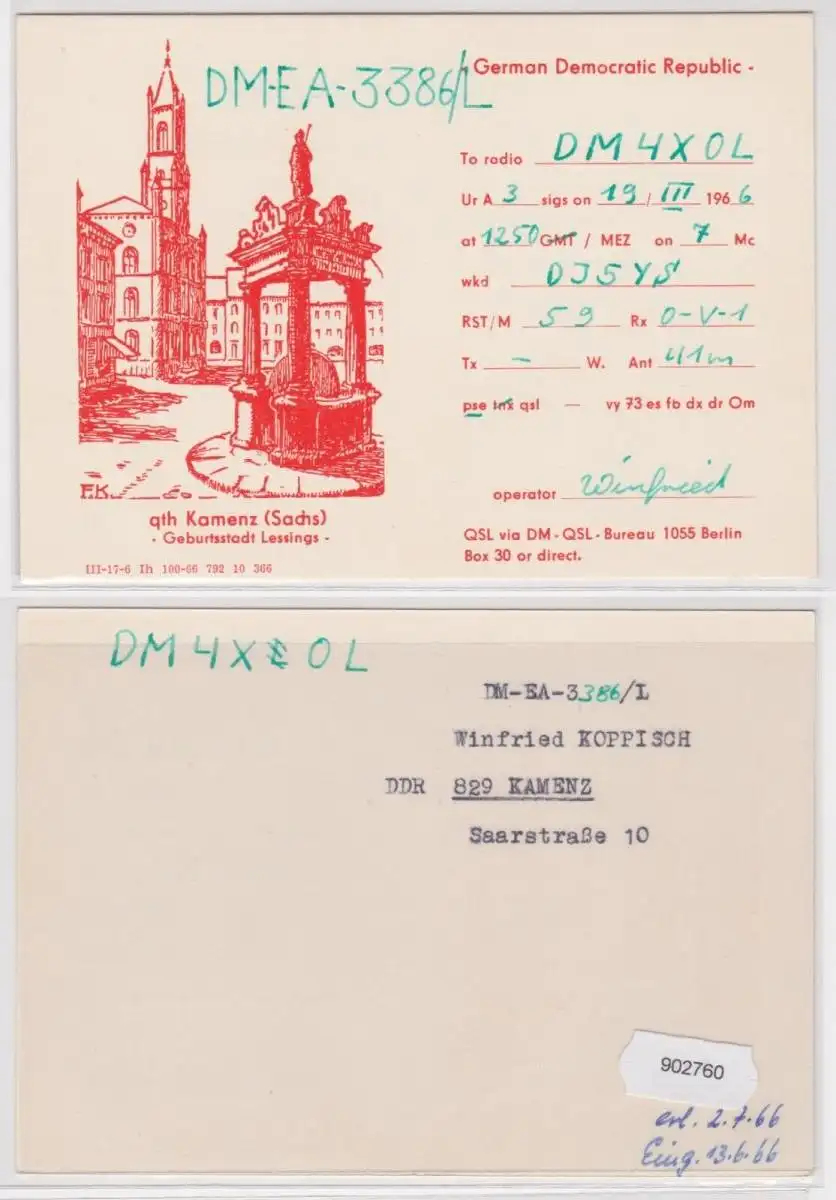 DM-EA-3386/L
German Democratic Republic -
To radio DM4XOL
Ur A 3 sigs on 19 / III 196 6
at 1250 GMT / MEZ on 7 Mc
wkd DJ5YS
RST/M 59 Rx 0-V-1
Tx - W. Ant 41m
pse tnx qsl — vy 73 es fb dx dr Om
operator Winfried
F.K.
qth Kamenz (Sachs)
- Geburtsstadt Lessings -
QSL via DM-QSL-Bureau 1055 Berlin
Box 30 or direct.
III-17-6 Ih 100-66 792 10 366
DM4XOL
DM-EA-3386/L
Winfried KOPPISCH
DDR 829 KAMENZ
Saarstraße 10
902760
erl. 2.7.66
Eing. 13.6.66